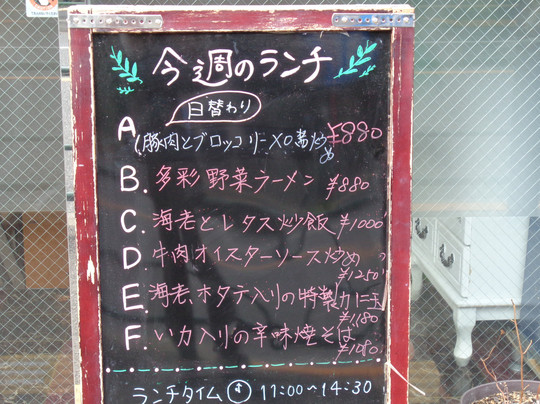 今週のランチ
日替わり
A. 豚肉とブロッコリーXO醤炒め ¥880
B. 多彩野菜ラーメン ¥880
C. 海老とレタス炒飯 ¥1000
D. 牛肉オイスターソース炒め
¥1250
E. 海老、ホタテ入りの特製カニ玉
¥1,180
F. いカ入りの辛味焼そば
¥1080
ランチタイム 11:00~14:30